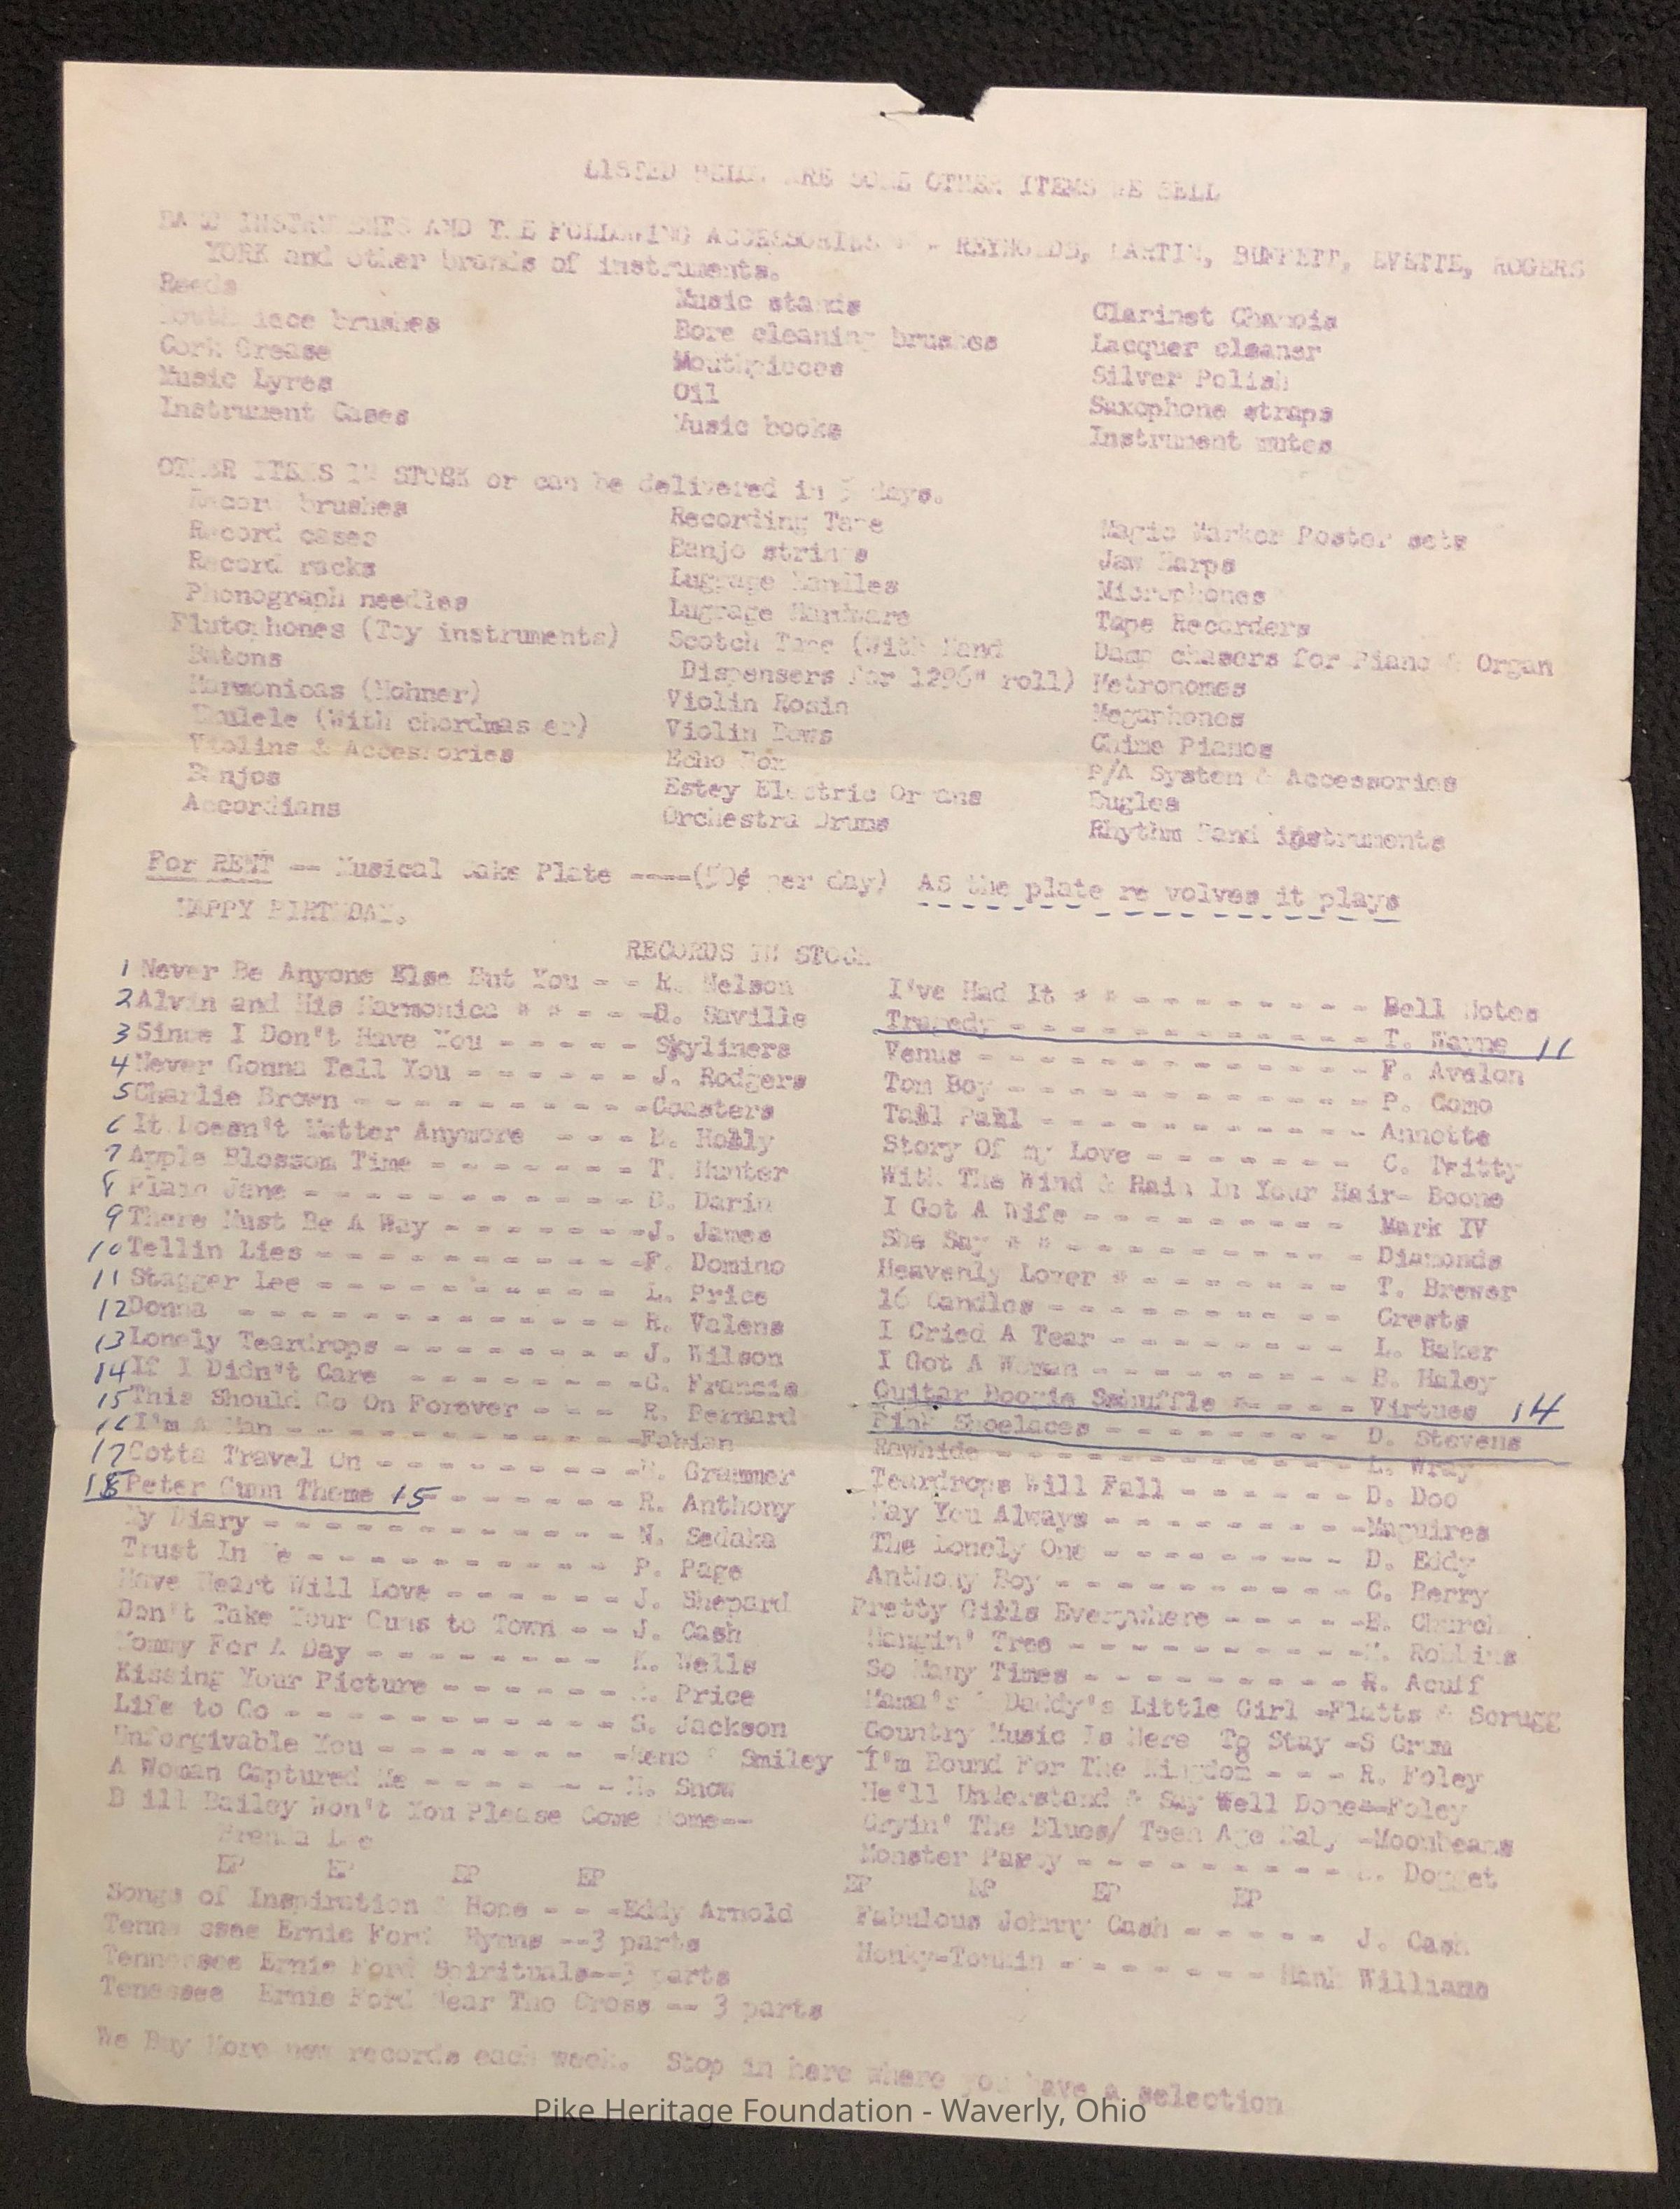 LISTED BELOW ARE SOME OTHER ITEMS WE SELL
BAND INSTRUMENTS AND THE FOLLOWING ACCESSORIES - REYNOLDS, MARTIN, BUFFETT, EVETTE, ROGERS
YORK and other brands of instruments.
Reeds
Mouthpiece brushes
Cork Grease
Music Lyres
Instrument Cases
Music stands
Bore cleaning brushes
Mouthpieces
Oil
Music books
Clarinet Chamois
Lacquer cleaner
Silver Polish
Saxophone straps
Instrument mutes
OTHER ITEMS IN STOCK or can be delivered in 3 days.
Record brushes
Record cases
Record racks
Phonograph needles
Flutophones (Toy instruments)
Batons
Harmonicas (Hohner)
Ukulele (With chordmas er)
Violins & Accessories
Banjos
Accordians
Recording Tape
Banjo strings
Luggage Handles
Luggage Hardware
Scotch Tape (With Hand
Dispensers for 1296" roll)
Violin Rosin
Violin Bows
Echo Box
Estey Electric Organs
Orchestra Drums
Magic Marker Poster sets
Jaw Harps
Microphones
Tape Recorders
Damp chasers for Piano & Organ
Metronomes
Megaphones
Chime Pianos
P/A System & Accessories
Bugles
Rhythm Band instruments
For RENT -- Musical Cake Plate ----(50¢ per day) As the plate re volves it plays
HAPPY BIRTHDAY.
RECORDS IN STOCK
1 Never Be Anyone Else But You - - R. Nelson
2 Alvin and His Harmonica * * - - -D. Saville
3 Since I Don't Have You - - - - - Skyliners
4 Never Gonna Tell You - - - - - - - J. Rodgers
5 Charlie Brown - - - - - - - - - -Coasters
6 It Doesn't Matter Anymore - - - B. Holly
7 Apple Blossom Time - - - - - - - T. Hunter
8 Plain Jane - - - - - - - - - - - - B. Darin
9 There Must Be A Way - - - - - - -J. James
10 Tellin Lies - - - - - - - - - - -F. Domino
11 Stagger Lee - - - - - - - - - - L. Price
12 Donna - - - - - - - - - - - - - - R. Valens
13 Lonely Teardrops - - - - - - - - - J. Wilson
14 If I Didn't Care - - - - - - - - -C. Francis
15 This Should Go On Forever - - - R. Bernard
16 I'm A Man - - - - - - - - - - - -Fabian
17 Gotta Travel On - - - - - - - - -B. Grammer
18 Peter Gunn Theme 15 - - - - - - - R. Anthony
My Diary - - - - - - - - - - - - - N. Sedaka
Trust In Me - - - - - - - - - - - P. Page
Have Heart Will Love - - - - - - J. Shepard
Don't Take Your Guns to Town - - J. Cash
Mommy For A Day - - - - - - - - K. Wells
Kissing Your Picture - - - - - - - Price
Life to Go - - - - - - - - - - - - S. Jackson
Unforgivable You - - - - - - - -Reno & Smiley
A Woman Captured Me - - - - - - - H. Snow
B ill Bailey Won't You Please Come Home--
Brenda Lee
EP EP EP EP
Songs of Inspiration & Hope - - -Eddy Arnold
Tenne ssee Ernie Ford Hymns --3 parts
Tennessee Ernie Ford Spirituals--3 parts
Tenessee Ernie Ford Near The Cross -- 3 parts
I've Had It * * - - - - - - - - - Bell Notes
Tragedy - - - - - - - - - - - - - T. Wayne 11
Venus - - - - - - - - - - - - - - F. Avalon
Tom Boy - - - - - - - - - - - - - P. Como
Tall Paul - - - - - - - - - - - - Annette
Story Of my Love - - - - - - - C. Twitty
With The Wind & Rain In Your Hair- Boone
I Got A Wife - - - - - - - - - - Mark IV
She Say * * - - - - - - - - - - - Diamonds
Heavenly Lover * - - - - - - - - T. Brewer
16 Candles - - - - - - - - - - - Crests
I Cried A Tear - - - - - - - - - L. Baker
I Got A Woman - - - - - - - - - - B. Haley
Guitar Boogie Schuffle *- - - - - Virtues 14
Pink Shoelaces - - - - - - - - - D. Stevens
Rawhide - - - - - - - - - - - - - L. Wray
Teardrops Will Fall - - - - - - D. Doo
May You Always - - - - - - - - - -Maguires
The Lonely One - - - - - - - - - D. Eddy
Anthony Boy - - - - - - - - - - - C. Berry
Pretty Girls Everywhere - - - - -E. Church
Hangin' Tree - - - - - - - - - - -M. Robbins
So Many Times - - - - - - - - - - R. Acuff
Mama's & Daddy's Little Girl -Flatts & Scrugg
Country Music Is Here To Stay -S Crum
I'm Bound For The Kingdom - - - R. Foley
He'll Understand & Say Well Done--Foley
Cryin' The Blues/ Teen Age Baby -Moonbeams
Monster Party - - - - - - - - - - Dogget
EP EP EP EP
Fabulous Johnny Cash - - - - - J. Cash
Honky-Tonkin - - - - - - - Hank Williams
We Buy More new records each week. Stop in here where you have a selection
Pike Heritage Foundation - Waverly, Ohio